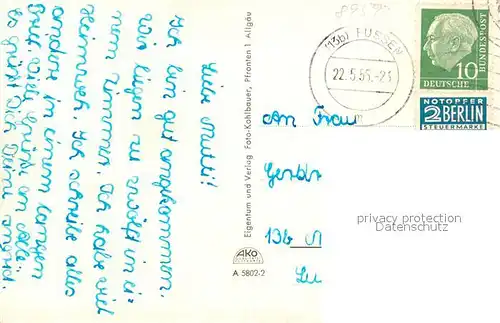 Liebe Mutti!
Ich bin gut angekommen.
Wir liegen zu zwölft in ei-
nem Zimmer. Ich habe viel
Heimweh. Ich schreibe alles
andere in einem langen
Brief. Viele Grüße an alle.
Es grüßt Dich Deine
Eigentum und Verlag Foto-Kohlbauer, Pfronten 1 Allgäu
AKO
A 5802-2
(13b) FÜSSEN
22.5.55.-21
m
10
DEUTSCHE
BUNDESPOST
NOTOPFER
2 BERLIN
STEUERMARKE
An Frau
13b
privacy protection
Datenschutz